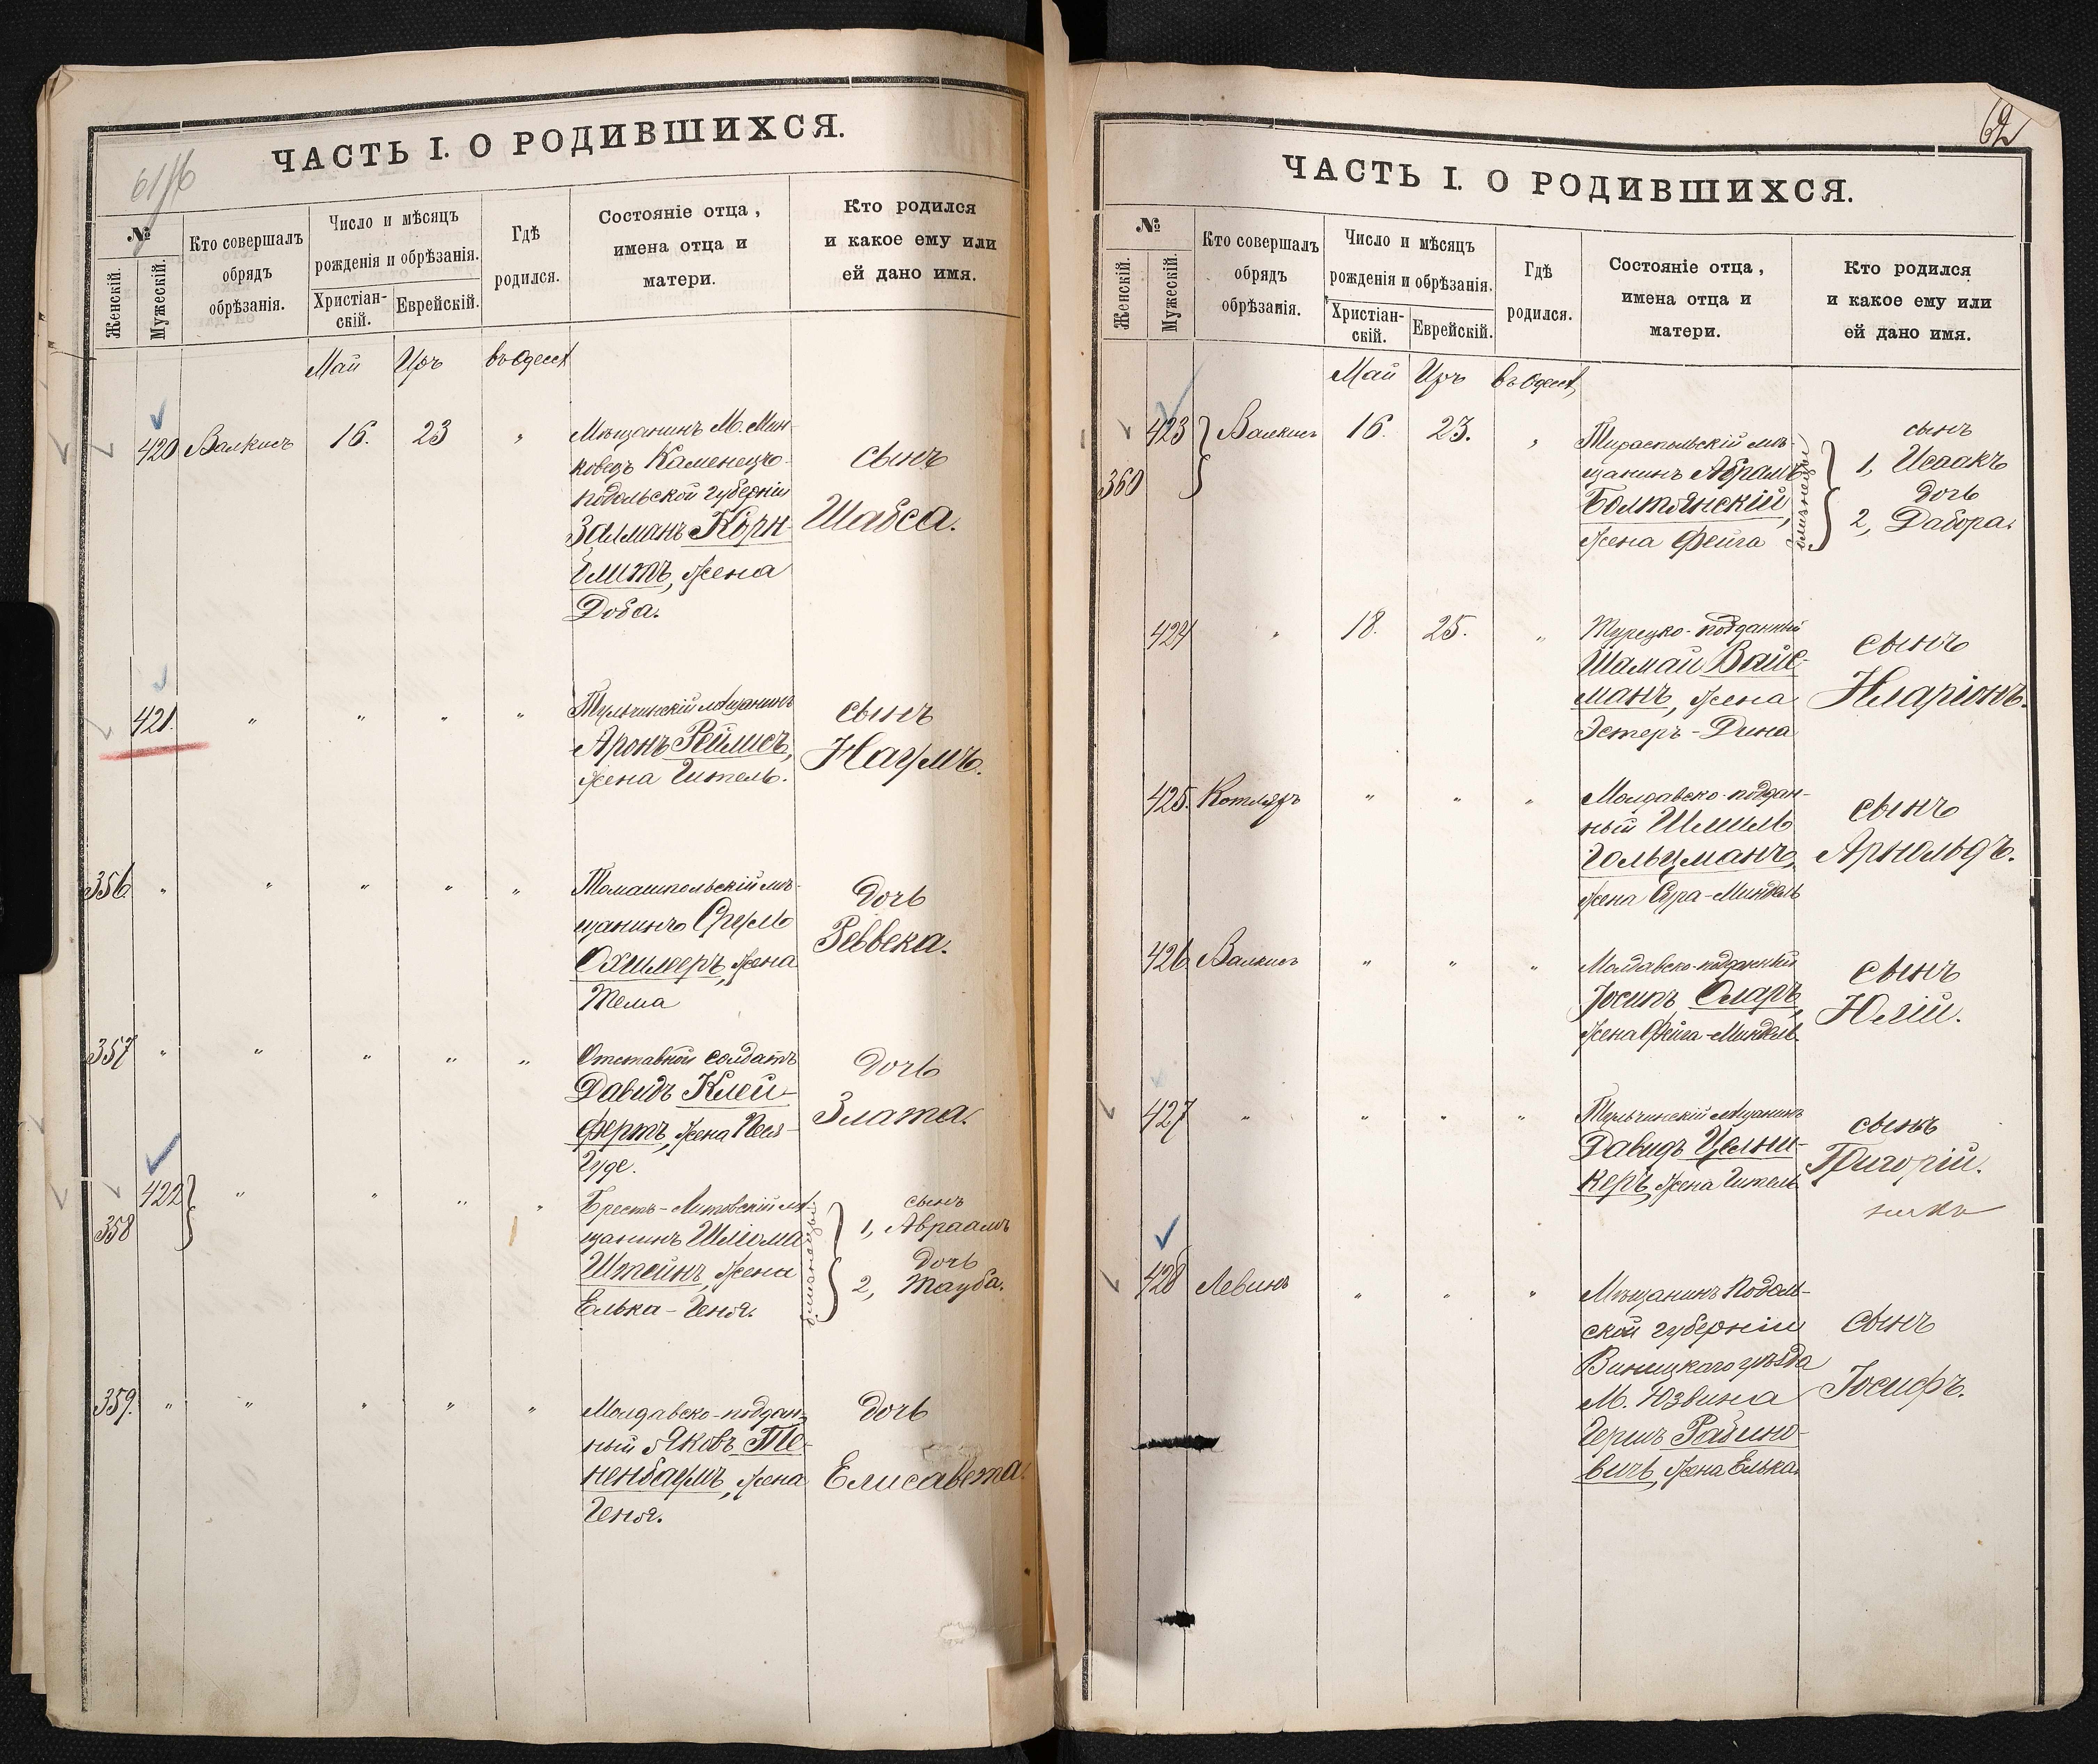 61/16
ЧАСТЬ I. О РОДИВШИХСЯ.
№
Женскій.
Мужескій.
Кто совершалъ
обрядъ
обрѣзанія.
Число и мѣсяцъ
рожденія и обрѣзанія.
Христіан-
скій.
Еврейскій.
Гдѣ
родился.
Состояніе отца,
имена отца и
матери.
Кто родился
и какое ему или
ей дано имя.
Май Иръ въ Одессѣ
420 Валкисъ 16. 23 "
Мѣщанинъ М. Мин-
ковецъ Каменецко-
подольской губерніи
Залманъ Корн-
Глитъ, жена
Доба.
сынъ
Шабса.
421. " " " "
Тульчинскій мѣщанинъ
Аронъ Рейлисъ,
жена Гитель.
сынъ
Наумъ.
356. " " " " "
Томашпольскій мѣ-
щанинъ Сруль
Охшлеръ, жена
Тема
дочь
Реввека.
357 " " " " "
Отставной солдатъ
Давидъ Клей-
фертъ, жена
дочь
Злата.
422
358 " " " "
Брестъ-Литовскій мѣ-
щанинъ Шлiома
Штейнъ, жена
Елька-Геня.
близнецы
сынъ
1, Авраамъ
дочь
2, Тауба.
359. " " " " "
Молдавско-поддан-
ный Яковъ Те-
ненбаумъ, жена
Геня.
дочь
Елисавета.
62
ЧАСТЬ I. О РОДИВШИХСЯ.
№
Женскій.
Мужескій.
Кто совершалъ
обрядъ
обрѣзанія.
Число и мѣсяцъ
рожденія и обрѣзанія.
Христіан-
скій.
Еврейскій.
Гдѣ
родился.
Состояніе отца,
имена отца и
матери.
Кто родился
и какое ему или
ей дано имя.
Май Иръ въ Одессѣ
423
360 Валкисъ 16. 23. "
Тираспольскій мѣ-
щанинъ Абрамъ
Болтянскій,
жена Фейга
близнецы
сынъ
1, Исаакъ
дочь
2, Дабора.
424 " 18. 25. "
Турецко-подданный
Шамай Вайс-
манъ, жена
Эстеръ-Дина
сынъ
Иларіонъ.
425. Котляръ " " "
Молдавско-поддан-
ный Шмиль
Гольцманъ,
жена Сура-Миндель
сынъ
Арнольдъ.
426 Валкисъ " " "
Молдавско-подданный
Іосипъ Оларъ,
жена Фейга-Миндель.
сынъ
Юлій.
427 " " " "
Тульчинскій мѣщанинъ
Давидъ Целни-
керъ, жена Гитель
сынъ
Григорій.
428 Левинъ " " "
Мѣщанинъ Подоль-
ской губерніи
Виницкаго уѣзда
М. Юзвина
Гершъ Рабино-
вичъ, жена Елька.
сынъ
Іосифъ.